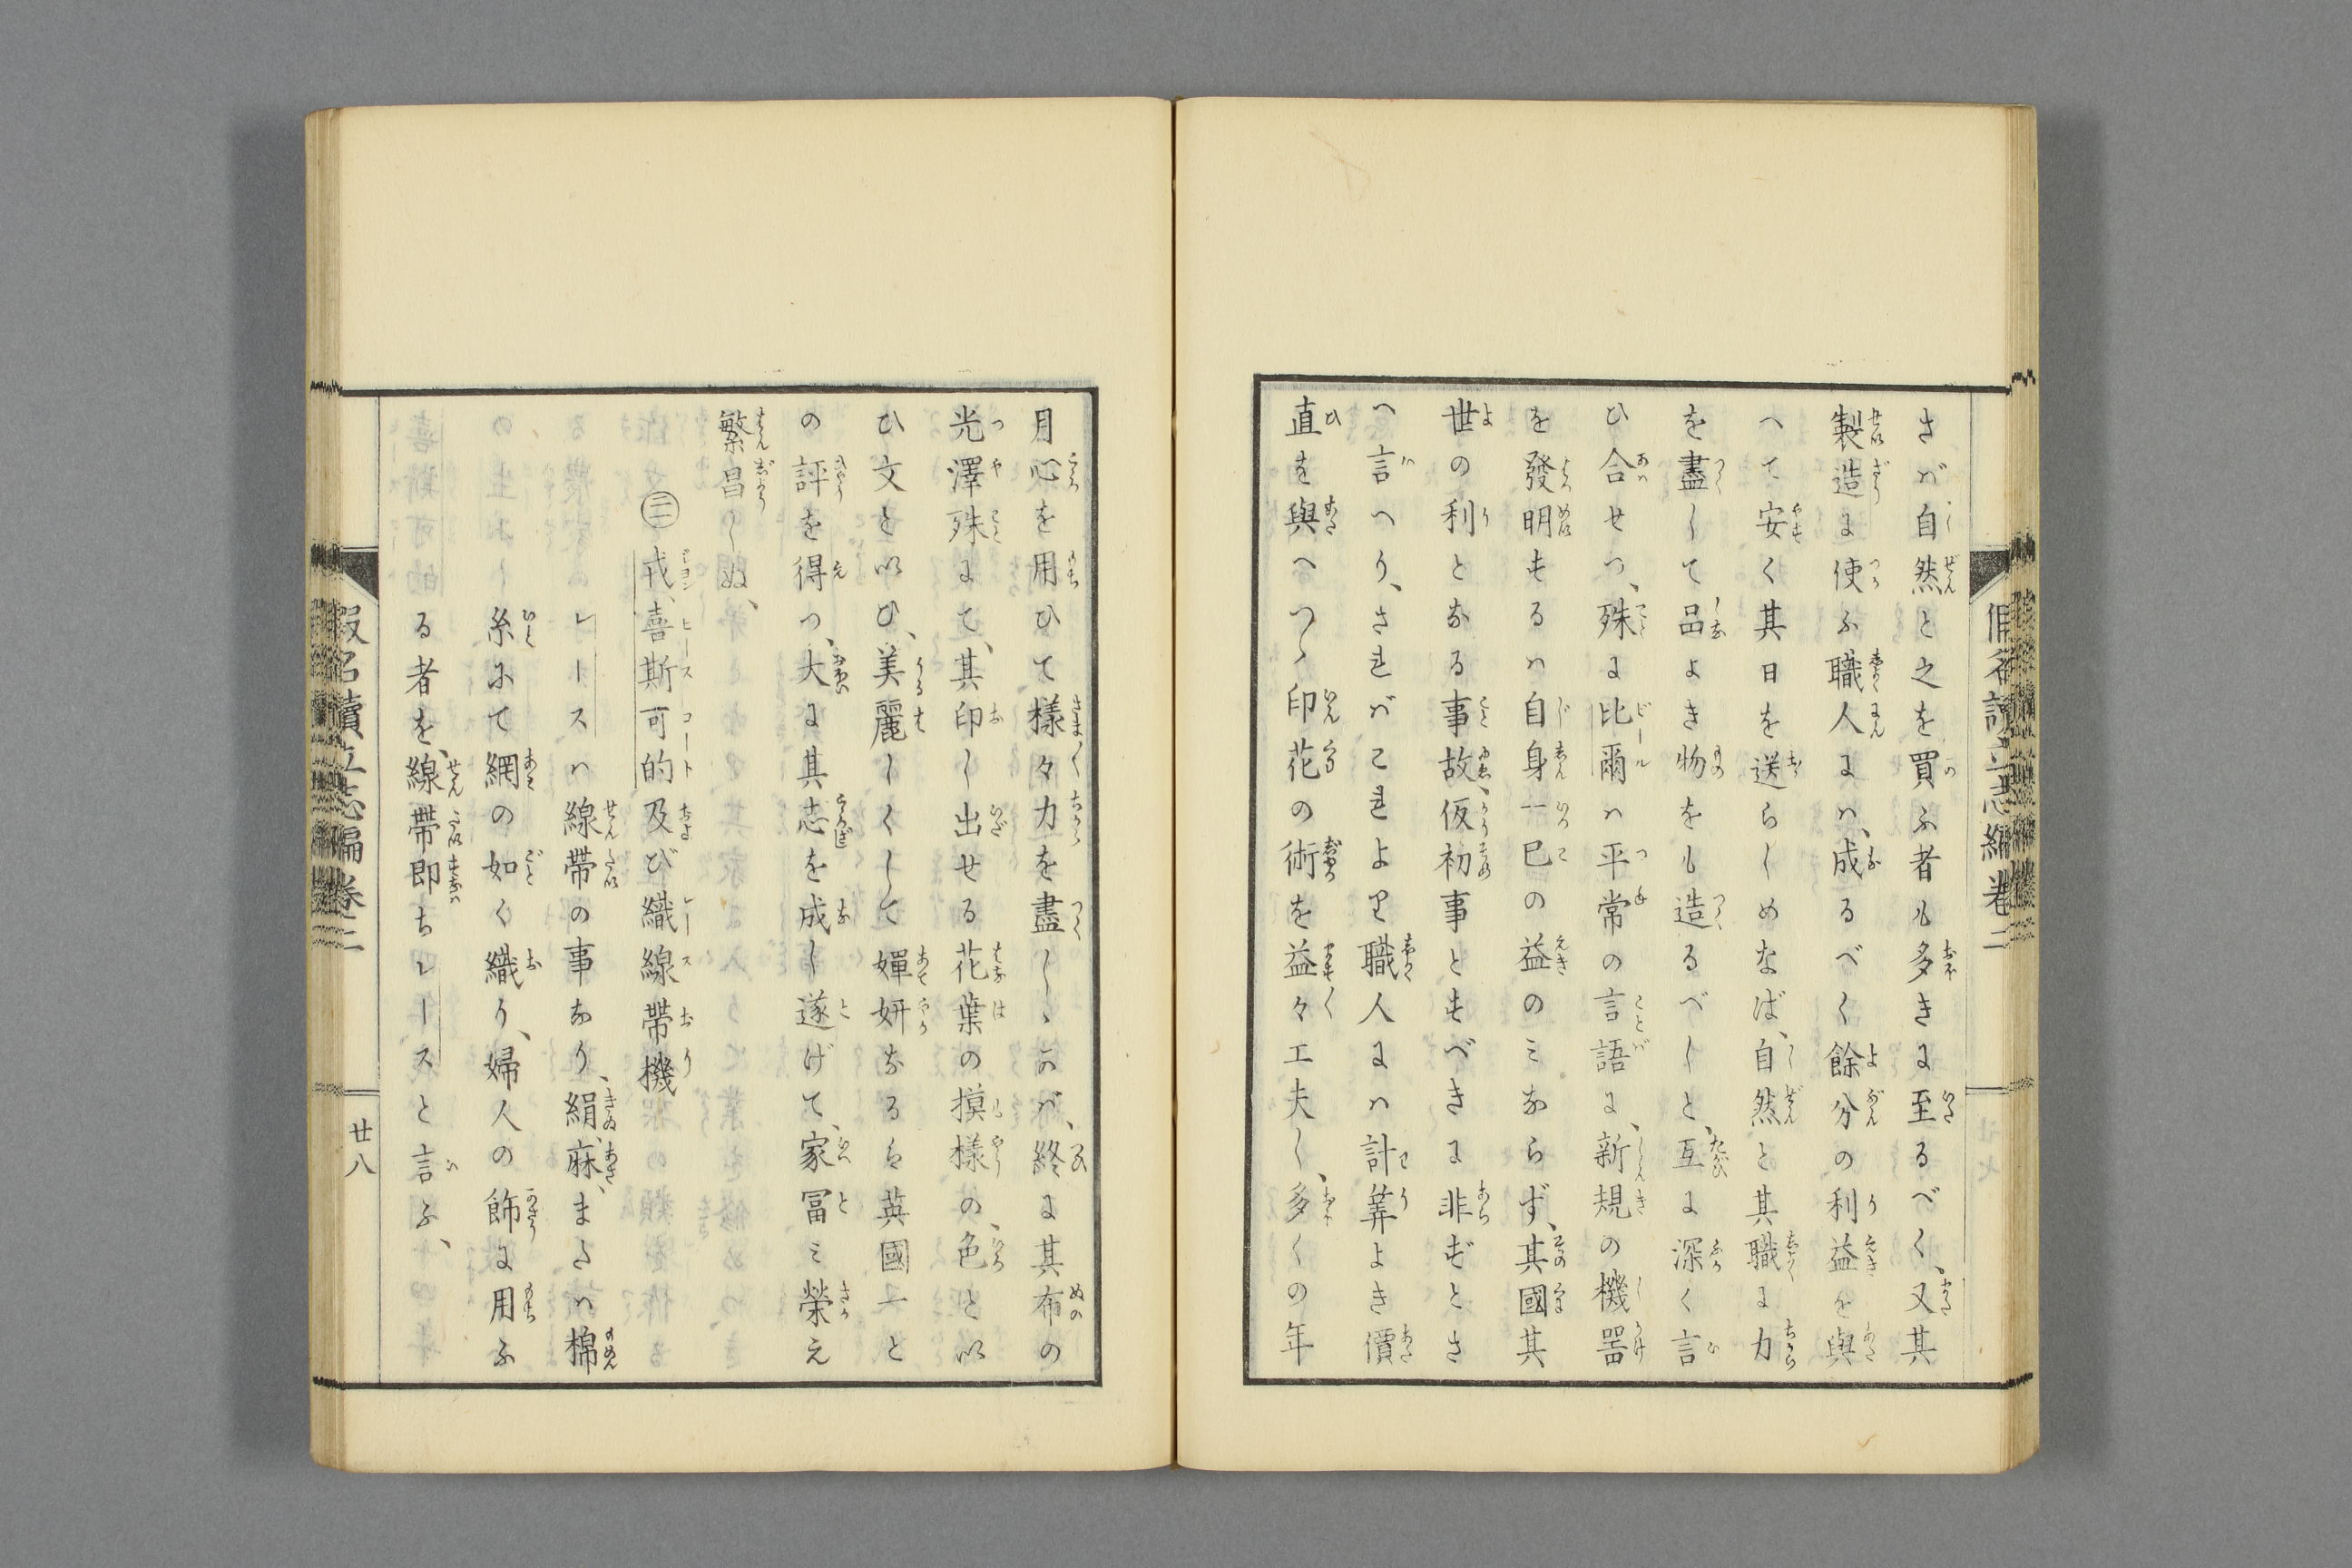 假名讀立志編卷二
さバ自然と之を買ふ者も多きに至るべく、又其
製造に使ふ職人にハ、成るべく餘分の利益を與
へて安く其日を送らしめなば、自然と其職に力
を盡して品よき物をも造るべしと、互に深く言
ひ合せつ、殊に比爾ハ平常の言語に、新規の機噐
を發明するハ自身一己の益のミならず、其國其
世の利となる事故、仮初事とすべきに非ずとさ
へ言へり、さればこれより職人にハ計筭よき價
直を與へつゝ印花の術を益々工夫し、多くの年
月心を用ひて樣々力を盡しゝかバ、終に其布の
光澤殊にて、其印し出せる花葉の摸樣の、色と以
ひ文と以ひ、美麗しくして嬋妍なるハ英國一と
の評を得つ、大に其志を成し遂げて、家冨ミ榮え
繁昌しぬ、
㊂戎、喜斯可的及び織線帶機
レースハ線帶の事なり、絹、麻、または棉
糸にて網の如く織り、婦人の飾に用ふ
る者を、線帶即ちレースと言ふ、
假名讀立志編卷二
廿八